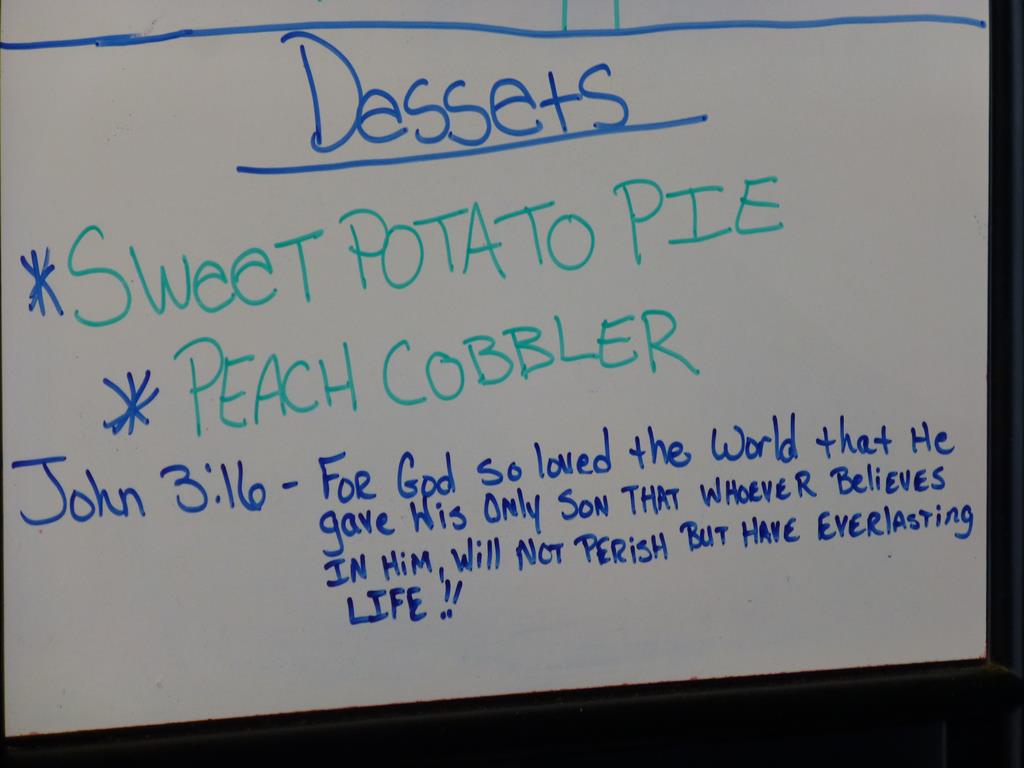 Dessets
*SWeeT POTATO PIE
* PEACH COBBLER
John 3:16 - FOR God so loved the World that He
gave His ONly SON THAT WHOEVER BeliEVES
IN HIM, Will NOT PERISH BUT HAVE EVERlASTing
LIFE !!